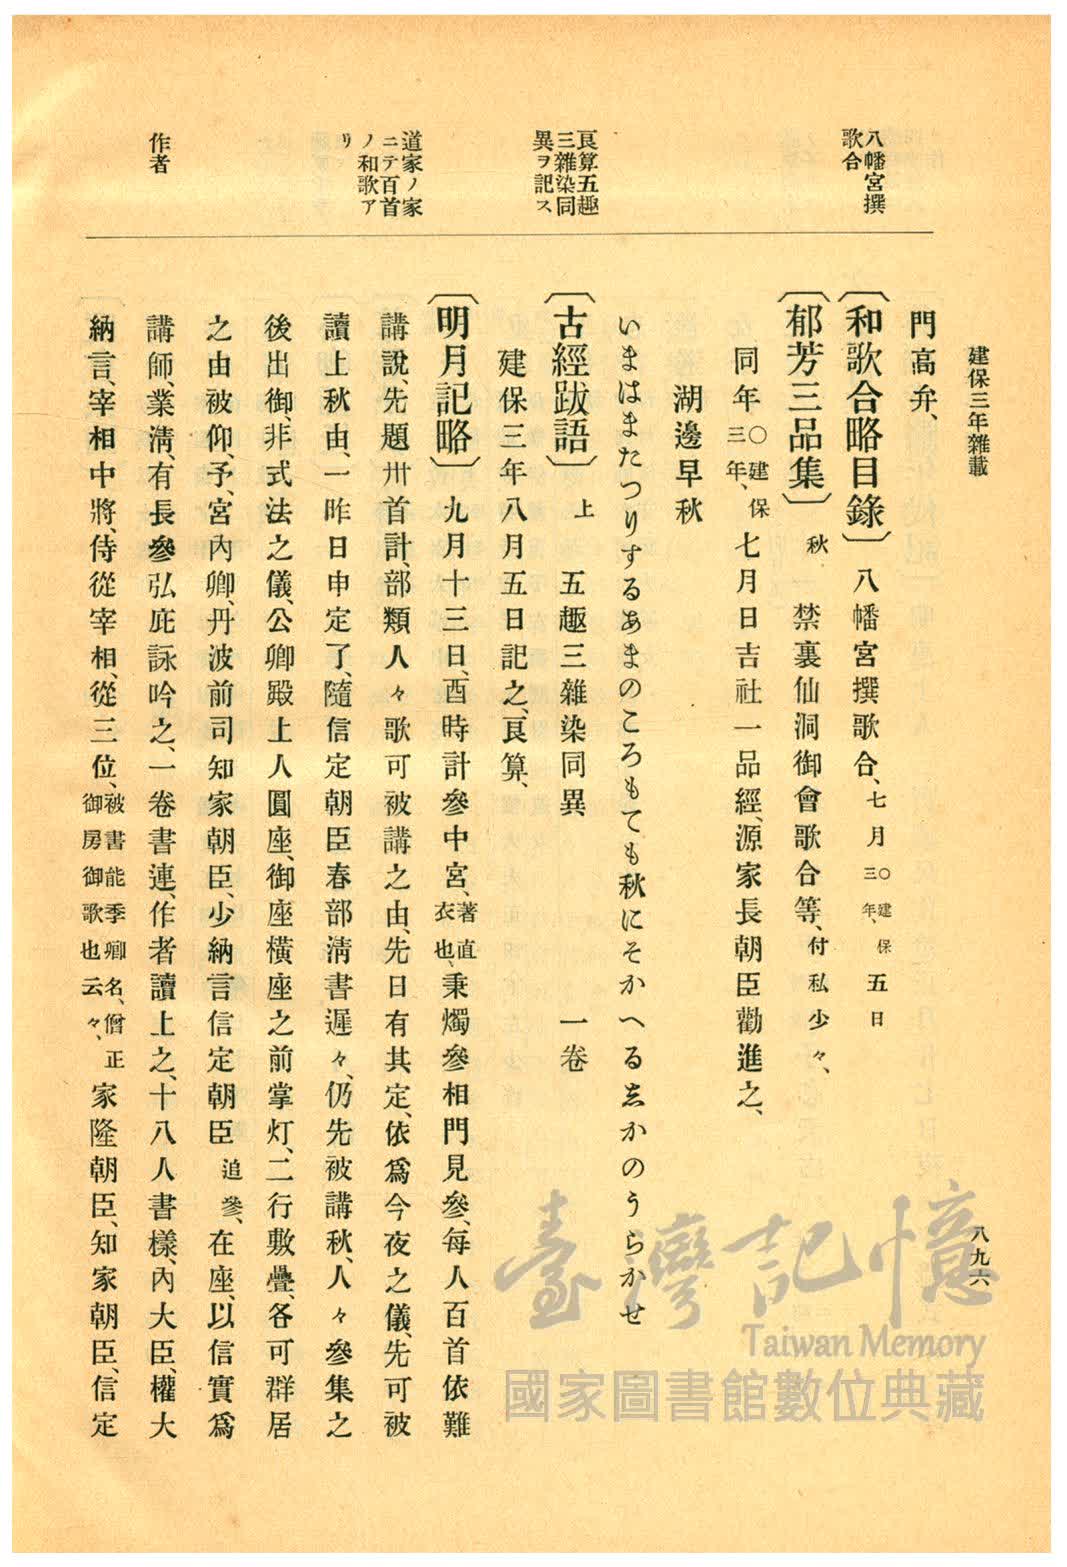 建保三年雜載
八九六
八幡宮撰
歌合
良算五趣
三雜染同
異ヲ記ス
道家ノ家
ニテ百首
ノ和歌ア
リ
作者
門高弁、
〔和歌合略目錄〕 八幡宮撰歌合、七月〇建保三年、五日
〔郁芳三品集〕秋 禁裏仙洞御會歌合等、付私少々、
同年〇建保三年、七月日吉社一品經、源家長朝臣勸進之、
湖邊早秋
いまはまたつりするあまのころもても秋にそかへる志かのうらかせ
〔古經跋語〕上 五趣三雜染同異 一卷
建保三年八月五日記之、良算、
〔明月記略〕 九月十三日、酉時計參中宮、著直衣也、秉燭參相門見參、每人百首依難
講說、先題卅首計、部類人々歌可被講之由、先日有其定、依爲今夜之儀、先可被
讀上秋由、一昨日申定了、隨信定朝臣春部淸書遲々、仍先被講秋、人々參集之
後出御、非式法之儀、公卿殿上人圓座、御座橫座之前掌灯、二行敷疊、各可群居
之由被仰、予、宮內卿、丹波前司知家朝臣、少納言信定朝臣追參、在座、以信實爲
講師、業淸、有長參弘庇詠吟之、一卷書連、作者讀上之、十八人書樣、內大臣、權大
納言、宰相中將、侍從宰相、從三位、被書能季卿名、僧正御房御歌也云々、家隆朝臣、知家朝臣、信定
臺灣記憶
Taiwan Memory
國家圖書館數位典藏